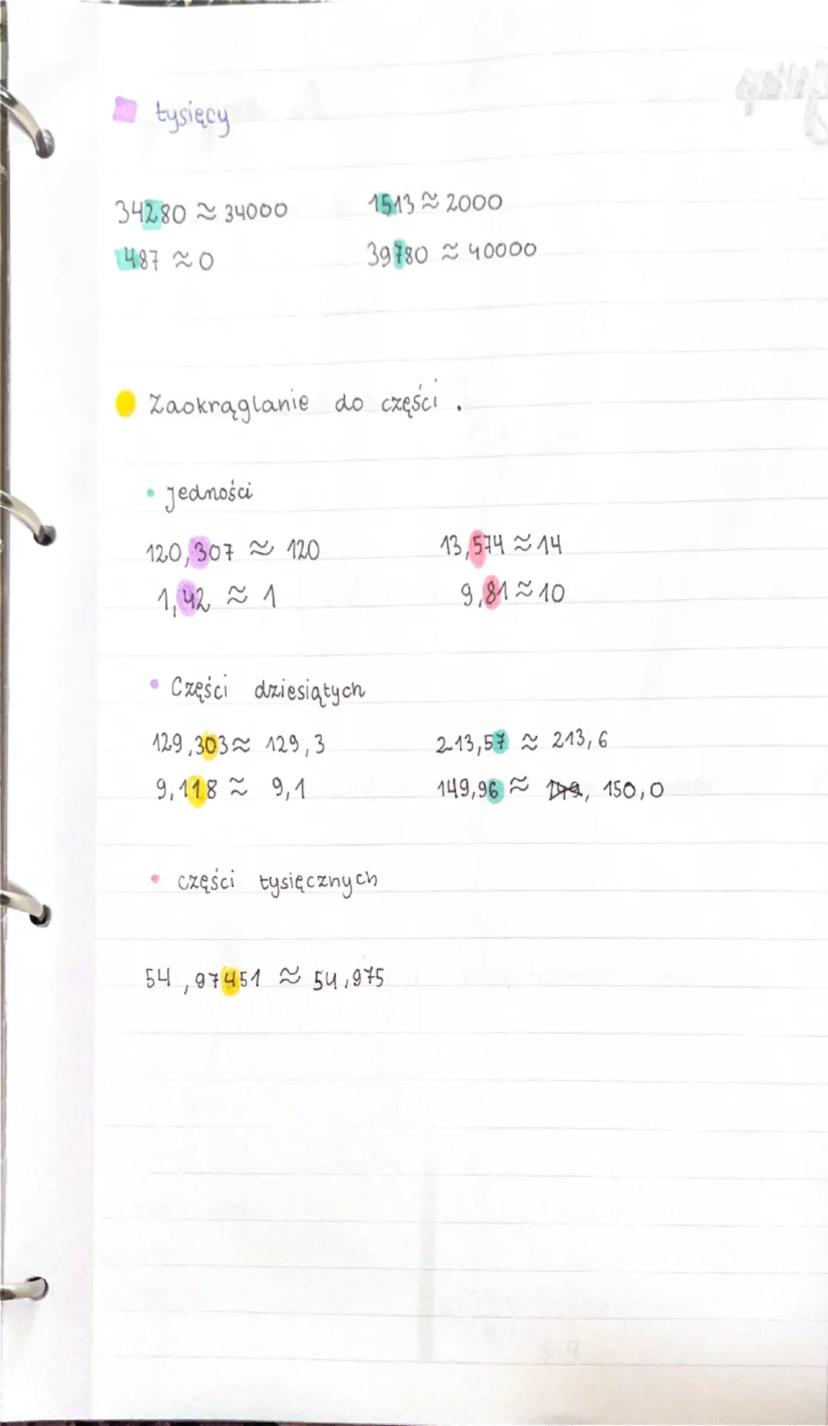 tysięcy
34280 ≈ 34000 1513 ≈ 2000
487 ≈ 0 39780 ≈ 40000
Zaokrąglanie do części .
• jedności
120,307 ≈ 120 13,574 ≈ 14
1,42 ≈ 1 9,81 ≈ 10
• Części dziesiątych
129,303 ≈ 129,3 213,57 ≈ 213,6
9,118 ≈ 9,1 149,96 ≈ 150,0
• części tysięcznych
54,97451 ≈ 54,975